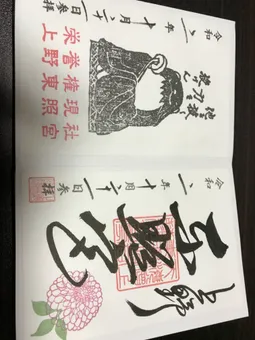 令和二年十月二十一日参拝
栄誉権現社
上野東照宮
上野
東照宮
令和二年十月二十一日参拝